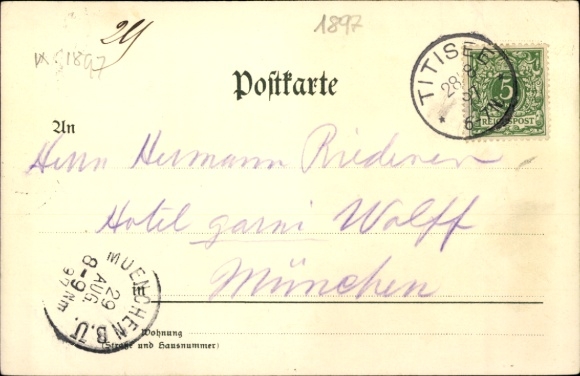 29
1897
1897
Postkarte
TITISEE
28 8
97
6-7N.
5
REICHSPOST
An
Herrn Hermann Riederer
Hotel garni Wolff
in München
MUENCHEN B.Ü.
29
AUG.
8-9
97 Nm
Wohnung
(Straße und Hausnummer)